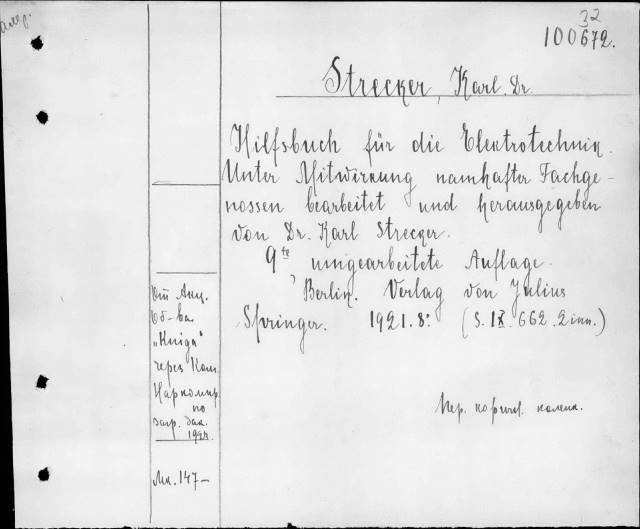 32
100672.
Strecker, Karl. Dr.
Hilfsbuch für die Elektrotechnik.
Unter Mitwirkung namhafter Fachge-
nossen bearbeitet und herausgegeben
von Dr. Karl Strecker.
9te umgearbeitete Auflage.
Berlin. Verlag von Julius
Springer. 1921. 8: (S. IX. 662. 2 inn.)
От Акц.
Об-ва
„Kniga"
через Ком.
Наркомпр.
по
загр. зак.
Мк. 147-
Пер. колен.